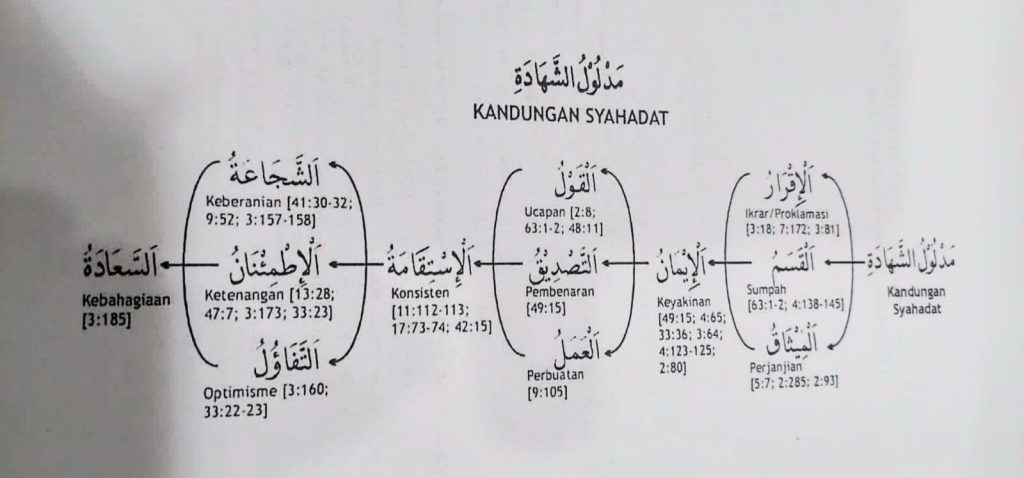 مَدْلُوْلُ الشَّهَادَةِ
KANDUNGAN SYAHADAT
مَدْلُوْلُ الشَّهَادَةِ
Kandungan
Syahadat
اَلْإِقْرَارُ
Ikrar/Proklamasi
[3:18; 7:172; 3:81]
اَلْقَسَمُ
Sumpah
[63:1-2; 4:138-145]
اَلْمِيْثَاقُ
Perjanjian
[5:7; 2:285; 2:93]
اَلْإِيْمَانُ
Keyakinan
[49:15; 4:65;
33:36; 3:64;
4:123-125;
2:80]
اَلْقَوْلُ
Ucapan [2:8;
63:1-2; 48:11]
اَلتَّصْدِيْقُ
Pembenaran
[49:15]
اَلْعَمَلُ
Perbuatan
[9:105]
اَلْإِسْتِقَامَةُ
Konsisten
[11:112-113;
17:73-74; 42:15]
اَلشَّجَاعَةُ
Keberanian [41:30-32;
9:52; 3:157-158]
اَلْإِطْمِئْنَانُ
Ketenangan [13:28;
47:7; 3:173; 33:23]
اَلتَّفَاؤُلُ
Optimisme [3:160;
33:22-23]
اَلسَّعَادَةُ
Kebahagiaan
[3:185]